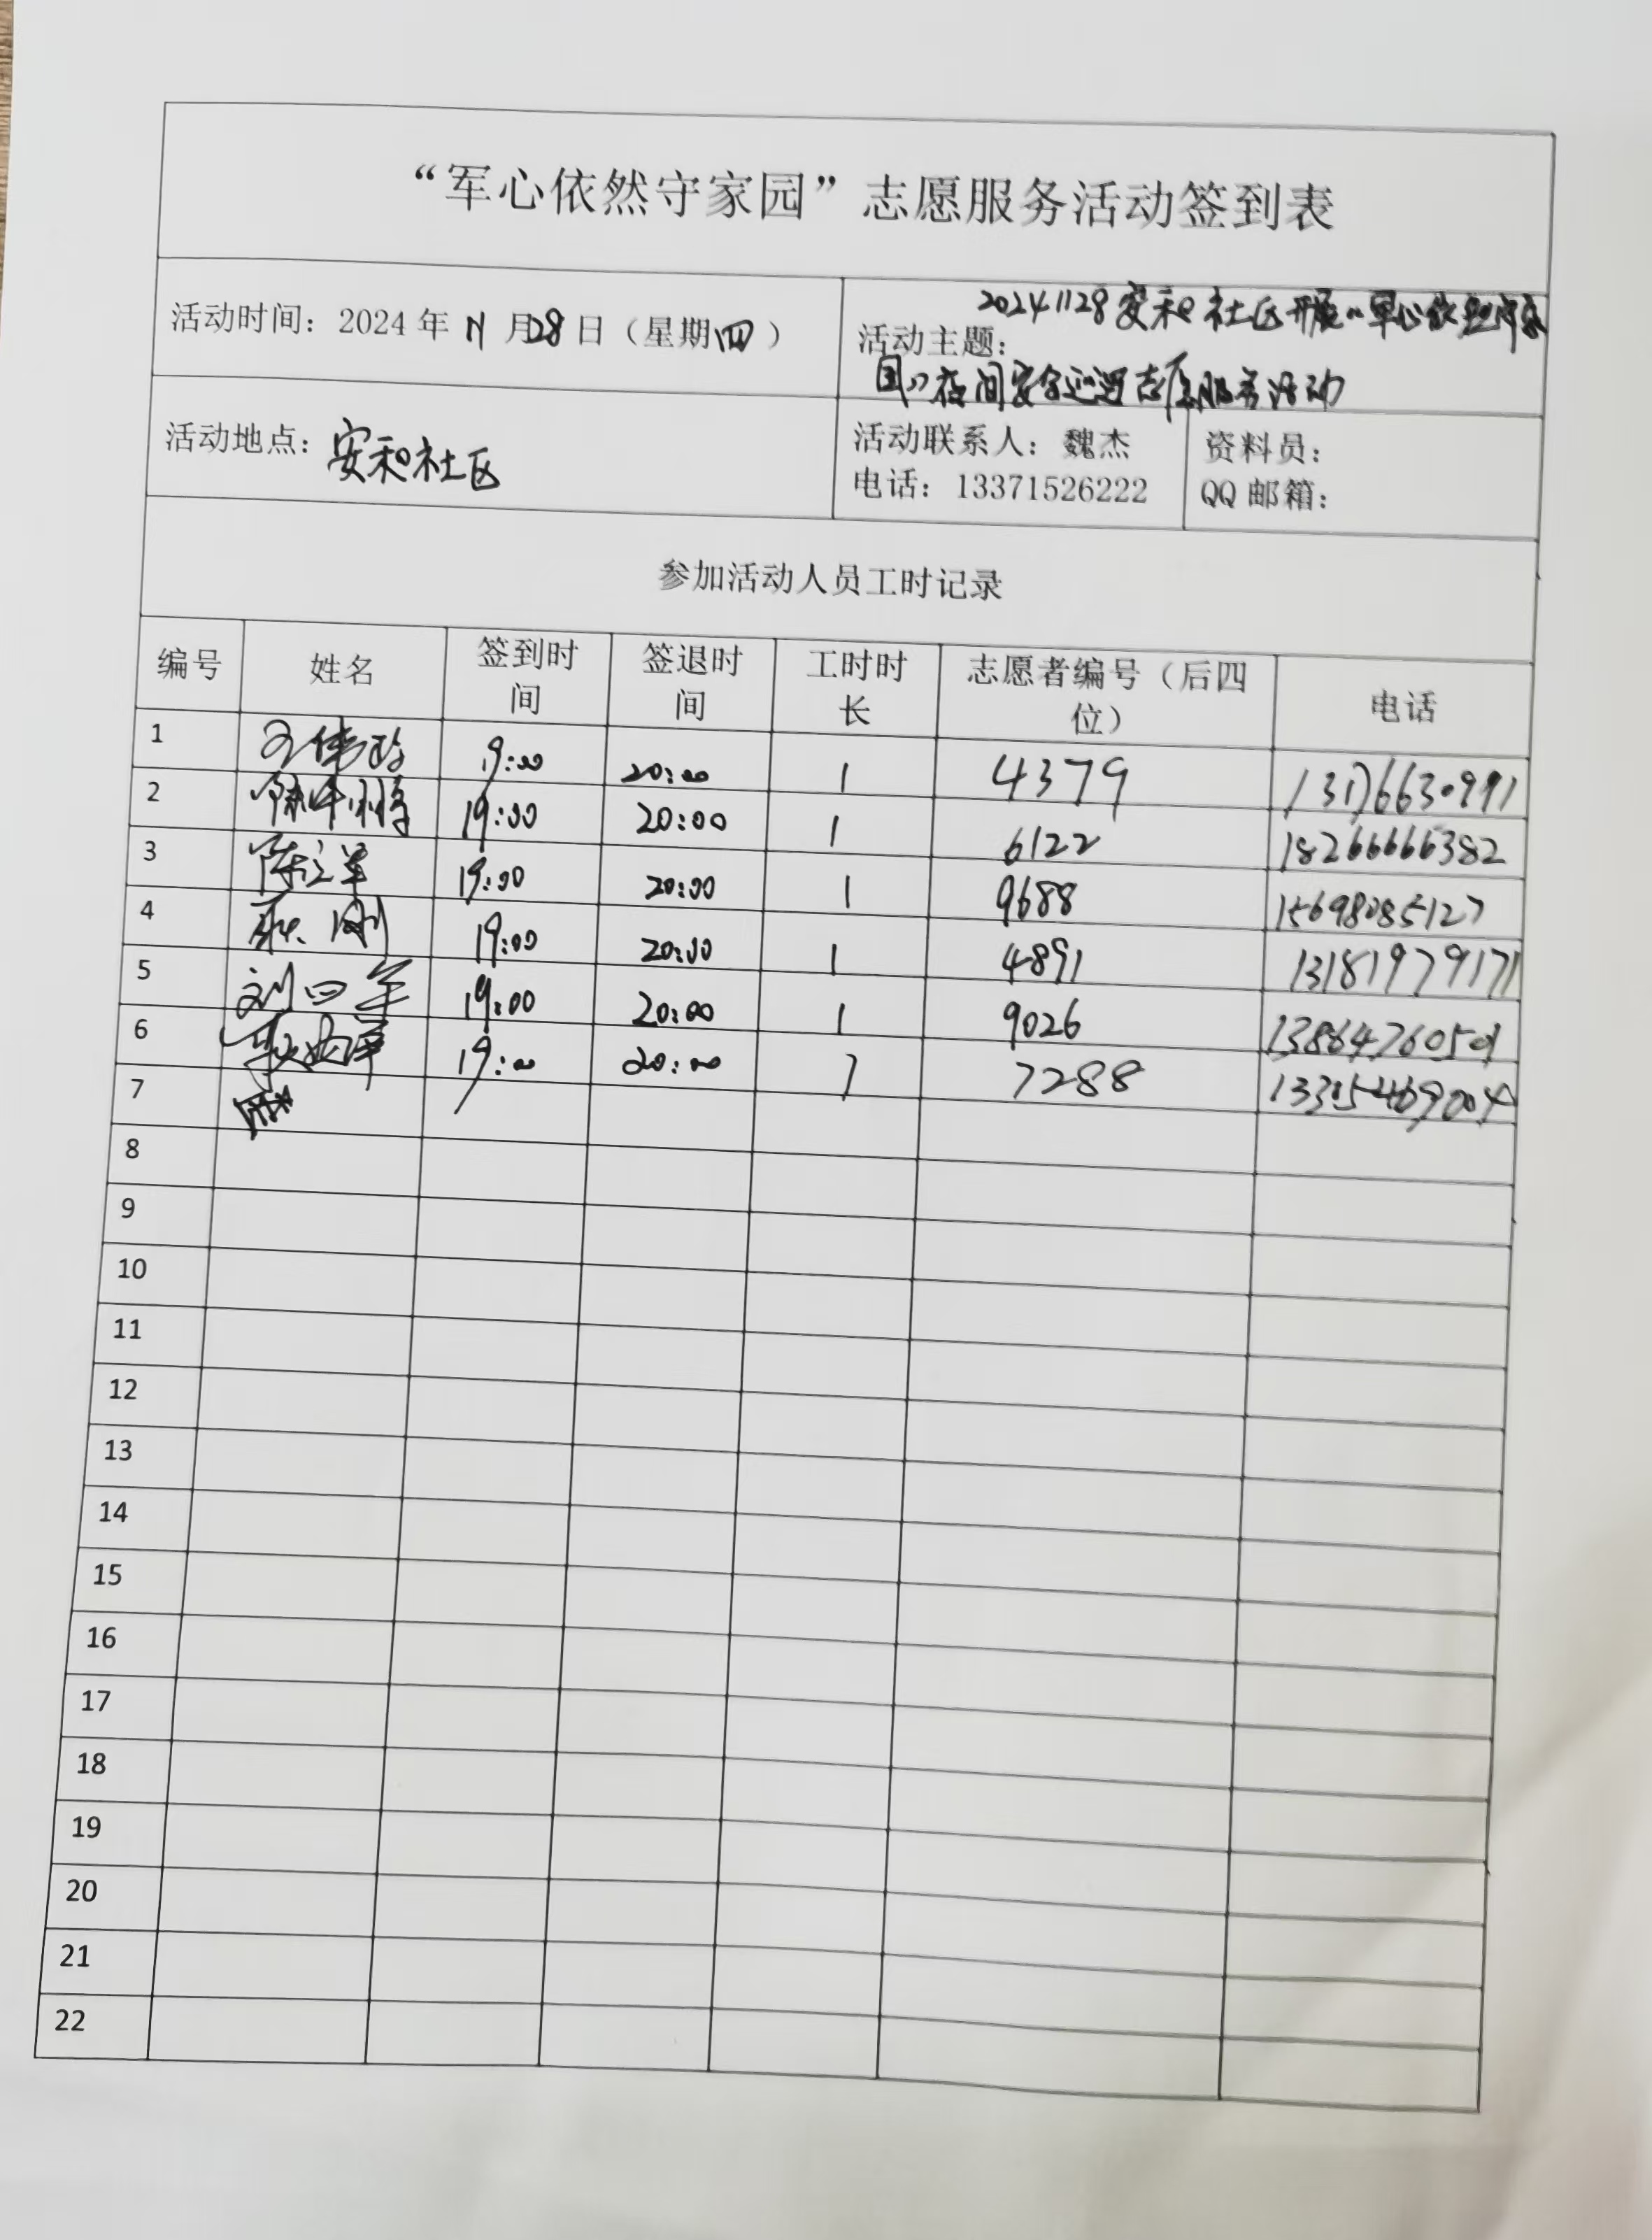 “军心依然守家园”志愿服务活动签到表
活动时间：2024年11月28日（星期四）
活动主题：20241128安和社区开展“军心依然守家
园”夜间安全巡逻志愿服务活动
活动地点：安和社区
活动联系人：魏杰
电话：13371526222
资料员：
QQ邮箱：
参加活动人员工时记录
编号 姓名 签到时间 签退时间 工时时长 志愿者编号（后四位） 电话
1 19:00 20:00 1 4379
2 19:00 20:00 1 6122 18266666382
3 陈立军 19:00 20:00 1 9688 15698085127
4 19:00 20:00 1 4891 13181979171
5 刘四军 19:00 20:00 1 9026 13864760501
6 19:00 20:00 1 7288
7
8
9
10
11
12
13
14
15
16
17
18
19
20
21
22